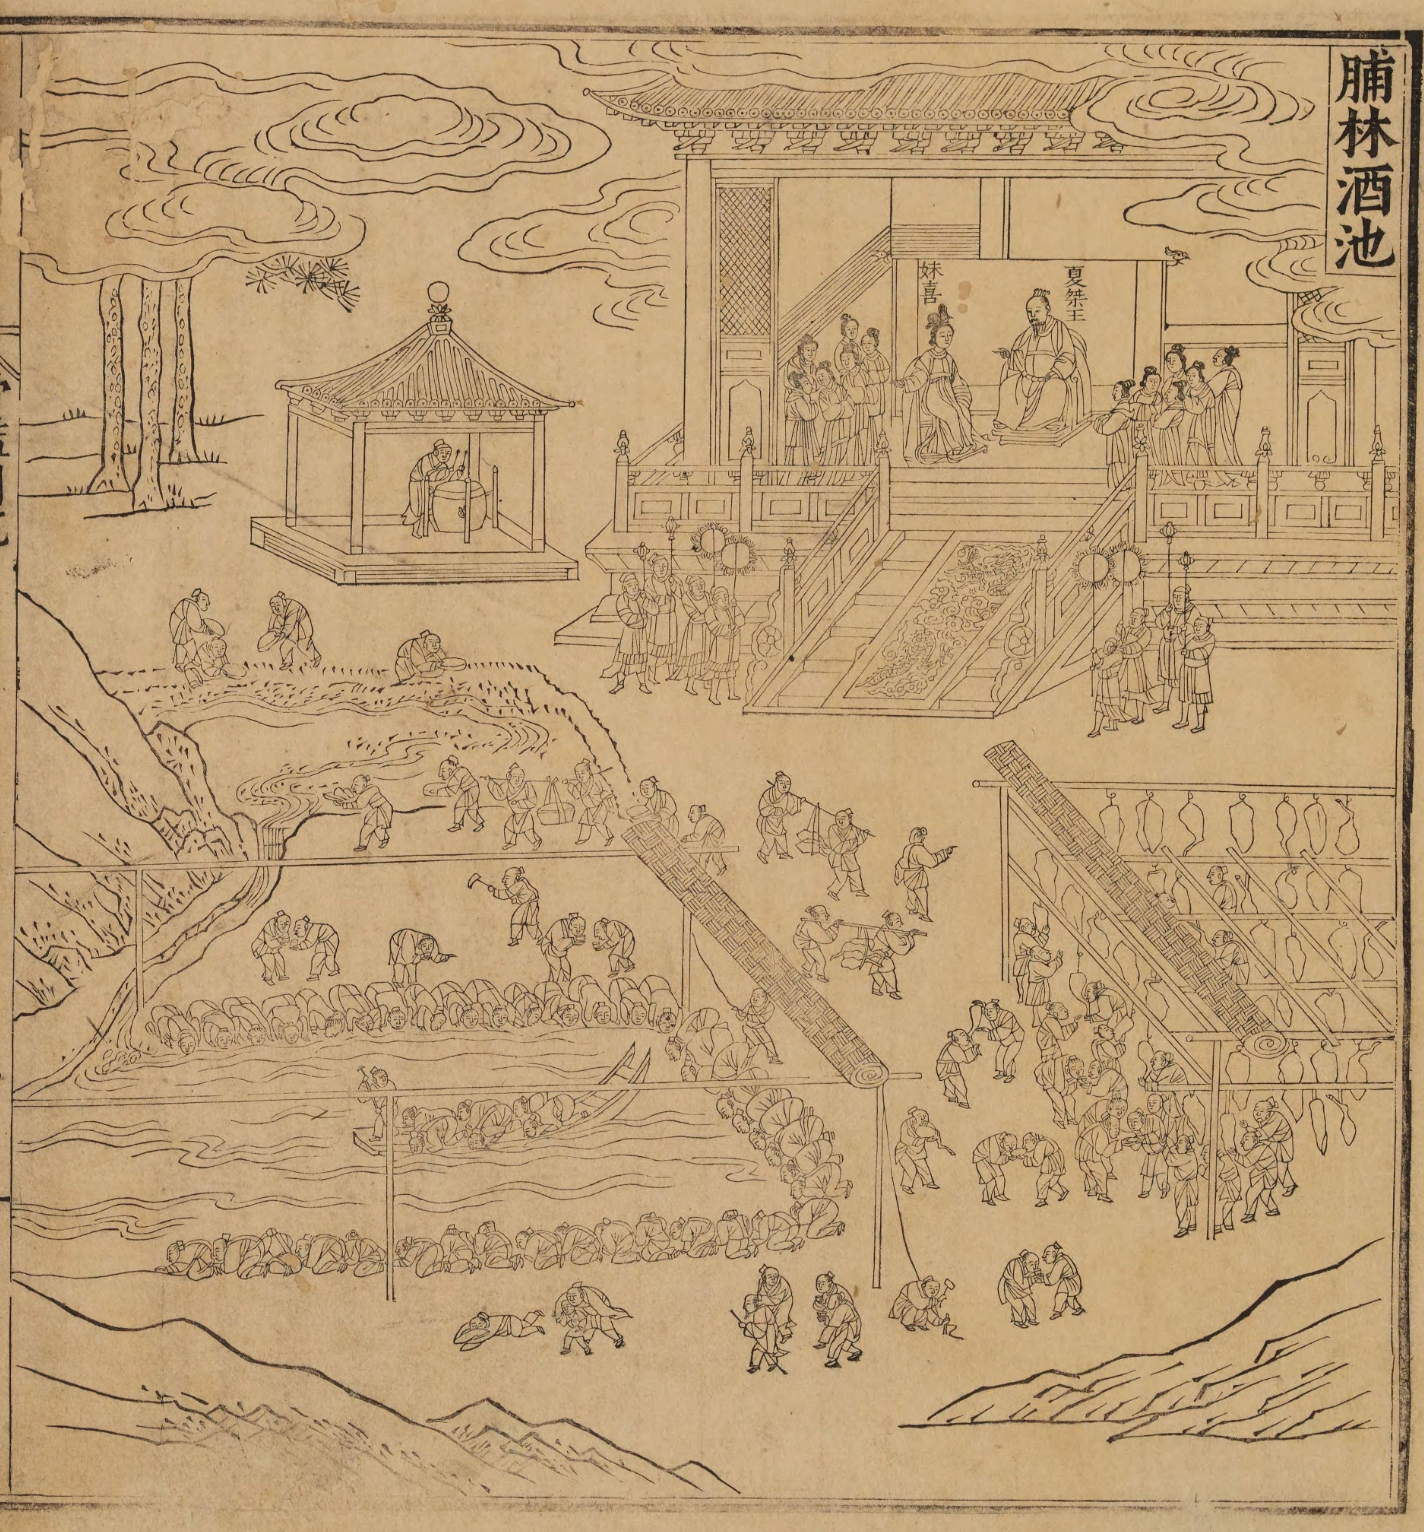 脯林酒池
夏桀王
妹喜